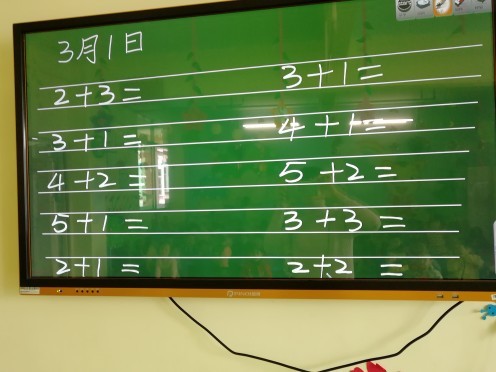 3月1日
2+3= 3+1=
3+1= 4+1=
4+2= 5+2=
5+1= 3+3=
2+1= 2+2=